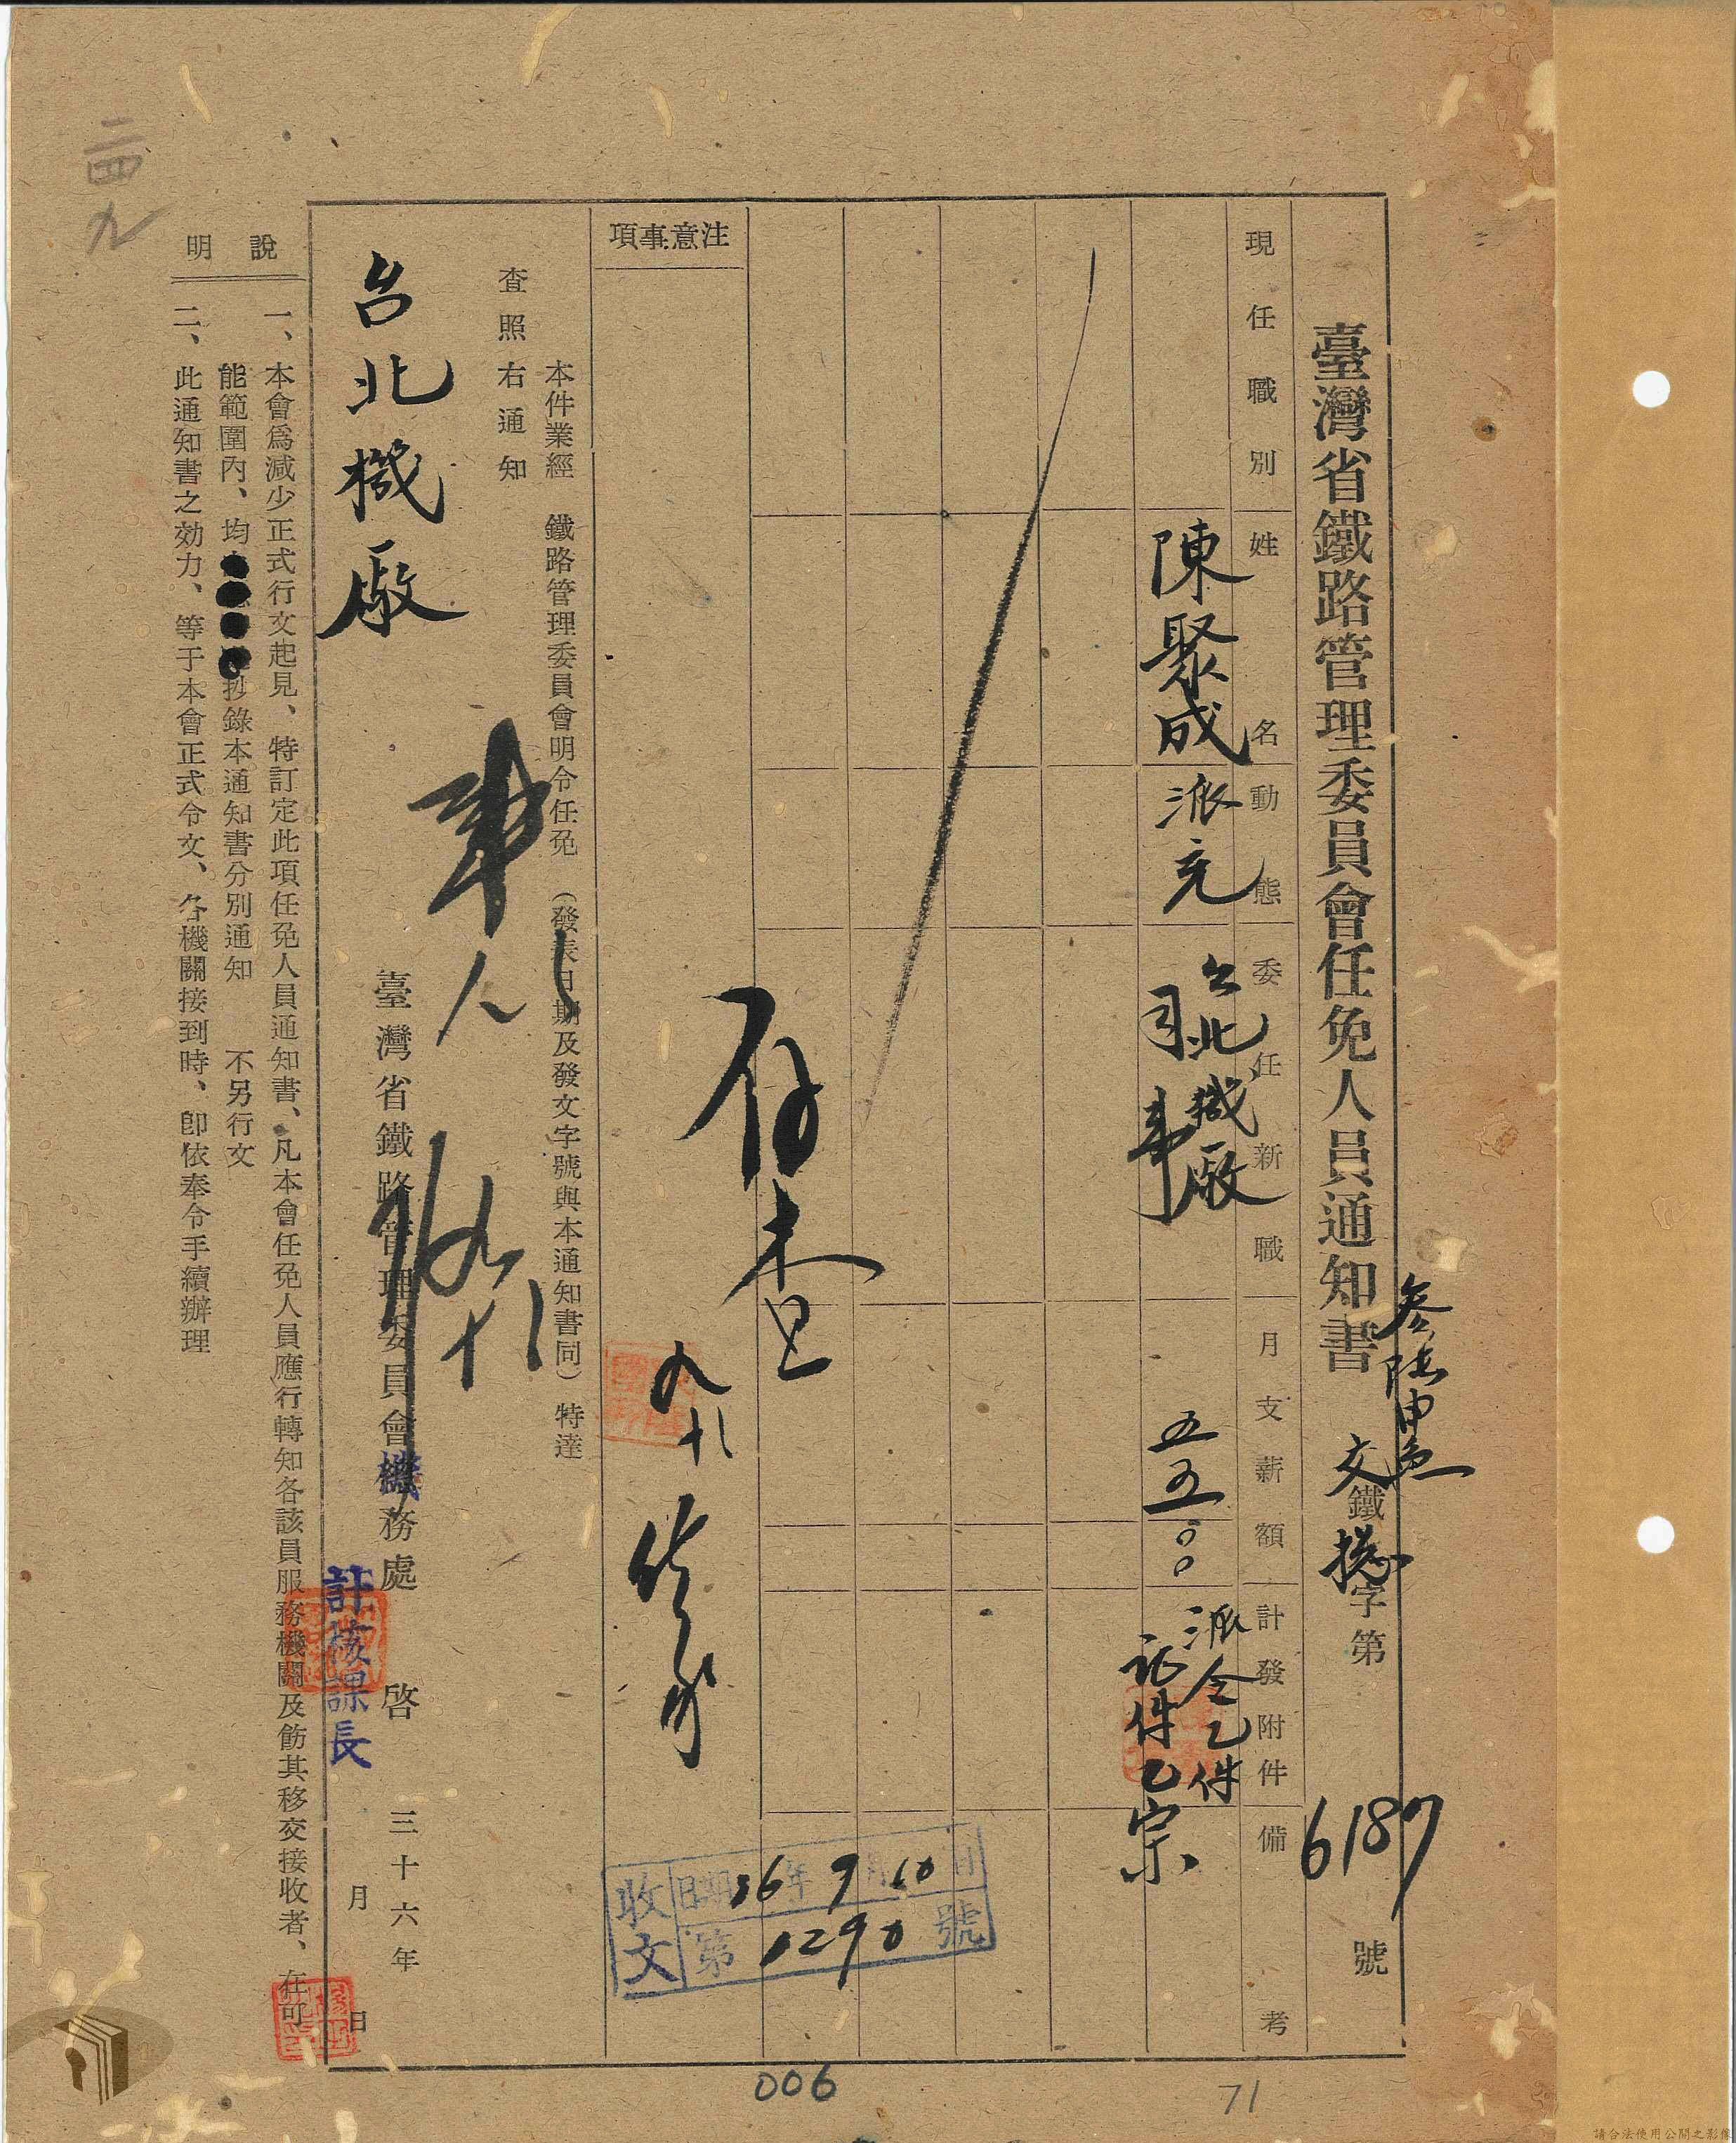 臺灣省鐵路管理委員會任免人員通知書
參陸申魚
交鐵總字第6187號
現任職別
姓名
動態
委任新職
月支薪額
計發附件
備考
陳聚成
派充
台北機廠
司事
五五.〇〇
派令乙件
証件乙宗
注意事項
存查
九十
收文
日期36年9月10日
第1290號
本件業經 鐵路管理委員會明令任免 (發表日期及發文字號與本通知書同) 特達
查照右通知
台北機廠
人
臺灣省鐵路管理委員會機務處 啓
計核課長
三十六年
月 日
說明
一、本會爲減少正式行文起見、特訂定此項任免人員通知書、凡本會任免人員應行轉知各該員服務機關及飭其移交接收者、在可
能範圍內、均抄錄本通知書分別通知 不另行文
二、此通知書之効力、等于本會正式令文、各機關接到時、卽依奉令手續辦理
二四九
006
71
請合法使用公開之影像